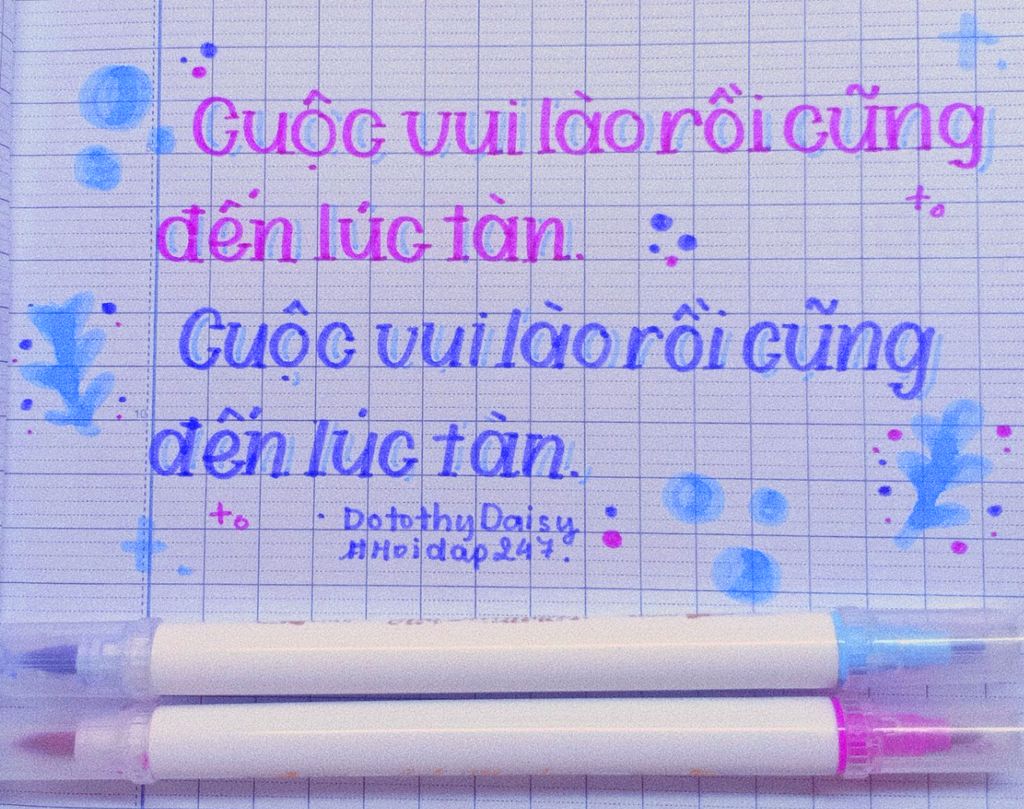 Cuộc vui lào rồi cũng
đến lúc tàn.
Cuộc vui lào rồi cũng
đến lúc tàn.
DotothyDaisy
#Hoidap247.